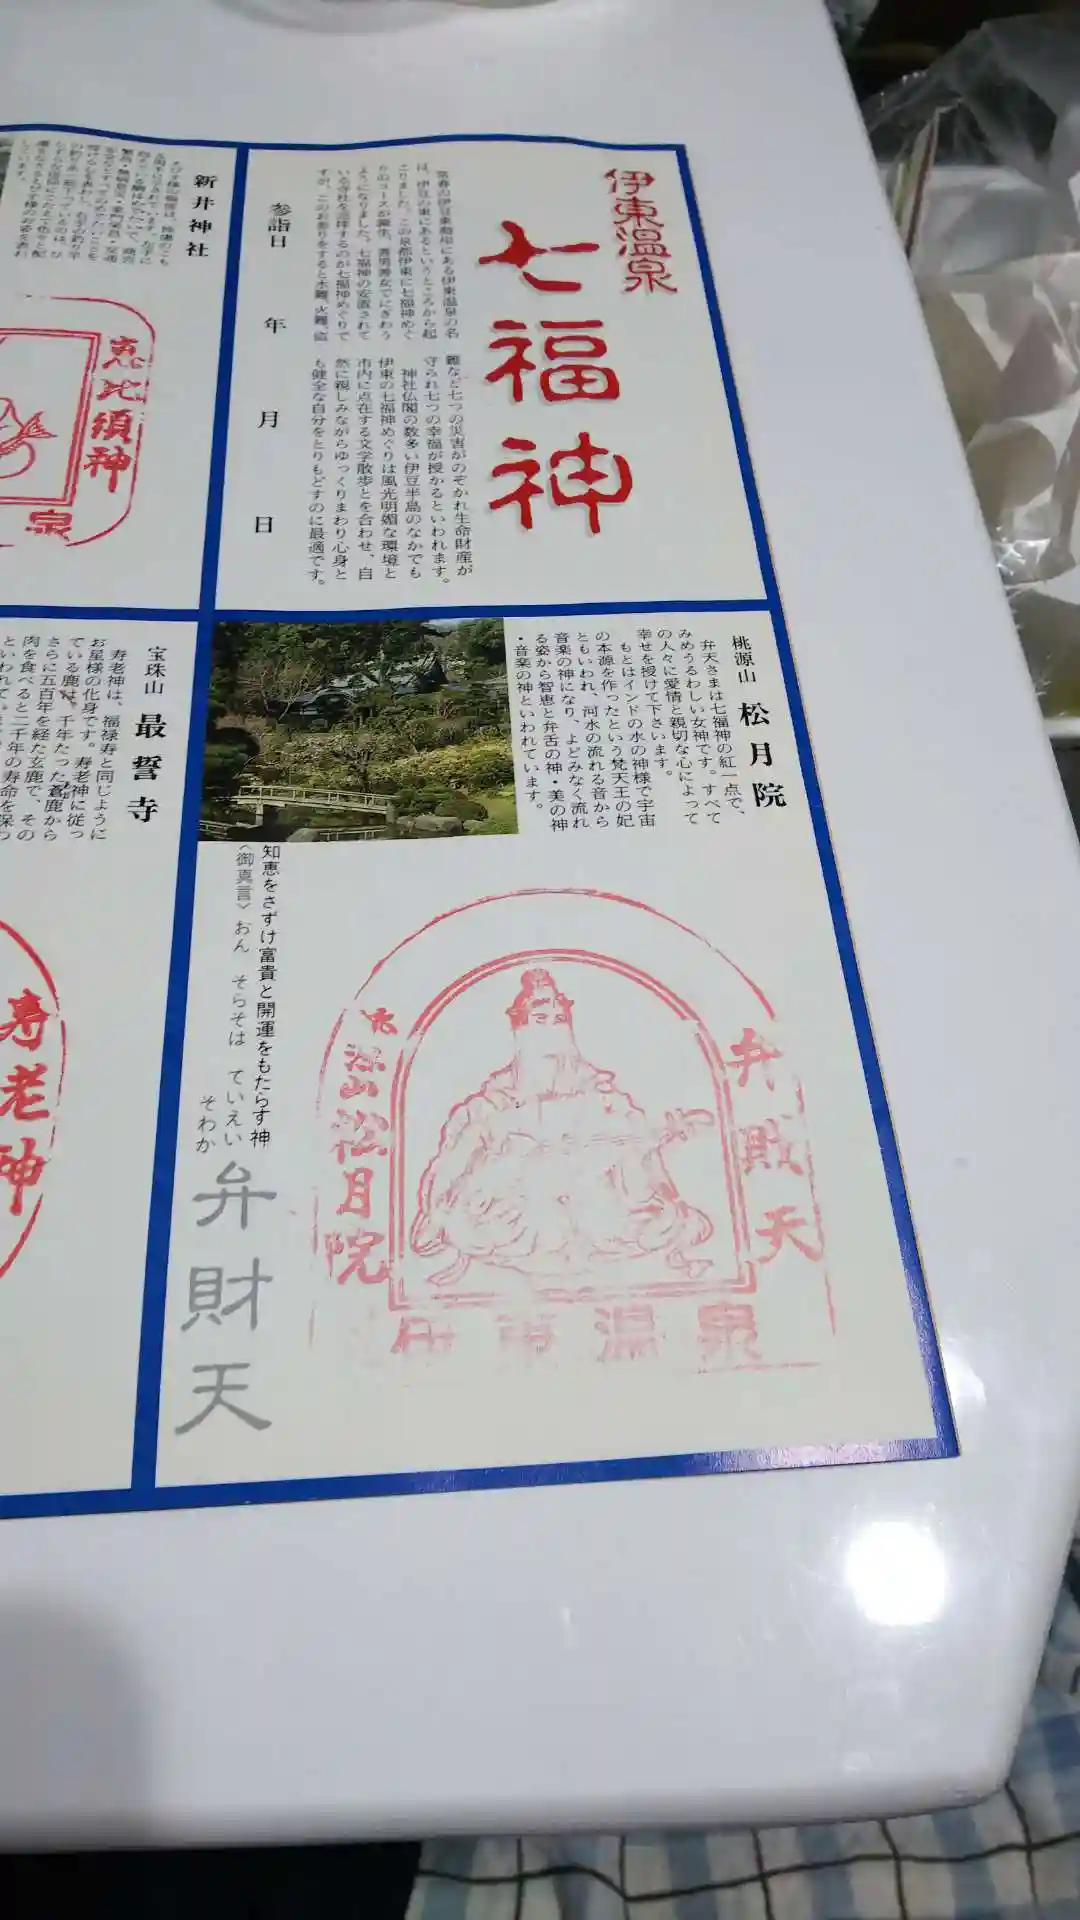 伊東温泉
七福神
常春の伊豆東海岸にある伊東温泉の名
は、伊豆の東にあるというところから起
こりました。この泉都伊東に七福神めぐ
りのコースが誕生、善男善女でにぎわう
ようになりました。七福神の安置されて
いる寺社を巡拝するのが七福神めぐりで
すが、このお参りをすると水難、火難、盗
難など七つの災害がのぞかれ生命財産が
守られ七つの幸福が授かるといわれます。
神社仏閣の数多い伊豆半島のなかでも
伊東の七福神めぐりは風光明媚な環境と
市内に点在する文学散歩とを合わせ、自
然に親しみながらゆっくりまわり心身と
も健全な自分をとりもどすのに最適です。
参詣日　年　月　日
新井神社
恵比須神
泉
桃源山 松月院
弁天さまは七福神の紅一点で、
みめうるわしい女神です。すべて
の人々に愛情と親切な心によって
幸せを授けて下さいます。
もとはインドの水の神様で宇宙
の本源を作ったという梵天王の妃
ともいわれ、河水の流れる音から
音楽の神になり、よどみなく流れ
る姿から智恵と弁舌の神・美の神
・音楽の神といわれています。
弁財天
源山松月院
伊東温泉
知恵をさずけ富貴と開運をもたらす神
〈御真言〉おん そらそば ていえい
そわか
弁財天
宝珠山 最誓寺
寿老神は、福禄寿と同じように
お星様の化身です。寿老神に従っ
ている鹿は、千年たった蒼鹿から
さらに五百年を経た玄鹿で、その
肉を食べると二千年の寿命を保つ
寿老神